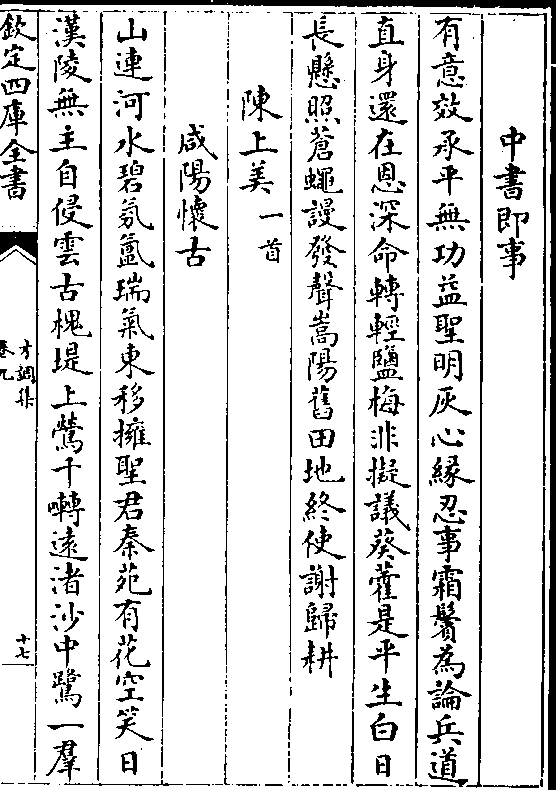 中書即事
有意效承平無功益聖明灰心緣忍事霜鬢為論兵道
直身還在恩深命轉輕鹽梅非擬議葵藿是平生白日
長懸照蒼蠅謾發聲嵩陽舊田地終使謝歸耕
陳上美一首
咸陽懷古
山連河水碧氛氳瑞氣東移擁聖君秦苑有花空笑日
漢陵無主自侵雲古槐堤上鶯千囀遠渚沙中鷺一羣
欽定四庫全書
才調集
卷九
十七